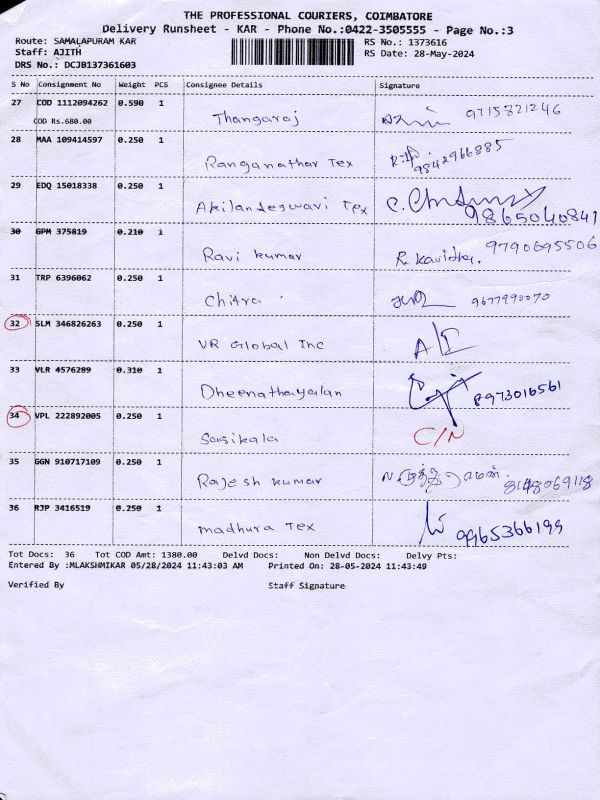 THE PROFESSIONAL COURIERS, COIMBATORE
Delivery Runsheet - KAR - Phone No.:0422-3505555 - Page No.:3
Route: SAMALAPURAM KAR RS No.: 1373616
Staff: AJITH RS Date: 28-May-2024
DRS No.: DCJB137361603
S No Consignment No Weight PCS Consignee Details Signature
27 COD 1112094262 0.590 1 Thangaraj 9715321246
COD Rs.680.00
28 MAA 109414597 0.250 1 Ranganathar Tex 9842966885
29 EDQ 15018338 0.250 1 Akilandeswari Tex 9865040841
30 GPM 375819 0.210 1 Ravi kumar R. Kavitha. 9790695506
31 TRP 6396062 0.250 1 Chitra 9677990070
32 SLM 346826263 0.250 1 VR Global Inc A/I
33 VLR 4576289 0.310 1 Dheenathayalan 8973016561
34 VPL 222892005 0.250 1 Sasikala C/N
35 GGN 910717109 0.250 1 Rajesh kumar 8148069118
36 RJP 3416519 0.250 1 madhura Tex 9965366199
Tot Docs: 36 Tot COD Amt: 1380.00 Delvd Docs: Non Delvd Docs: Delvy Pts:
Entered By :MLAKSHMIKAR 05/28/2024 11:43:03 AM Printed On: 28-05-2024 11:43:49
Verified By Staff Signature